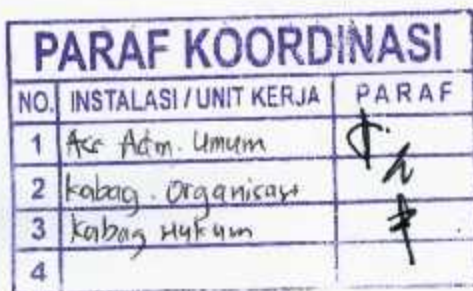 PARAF KOORDINASI
NO. INSTALASI / UNIT KERJA PARAF
1 Ass Adm. Umum
2 Kabag. Organisasi
3 Kabag Hukum
4